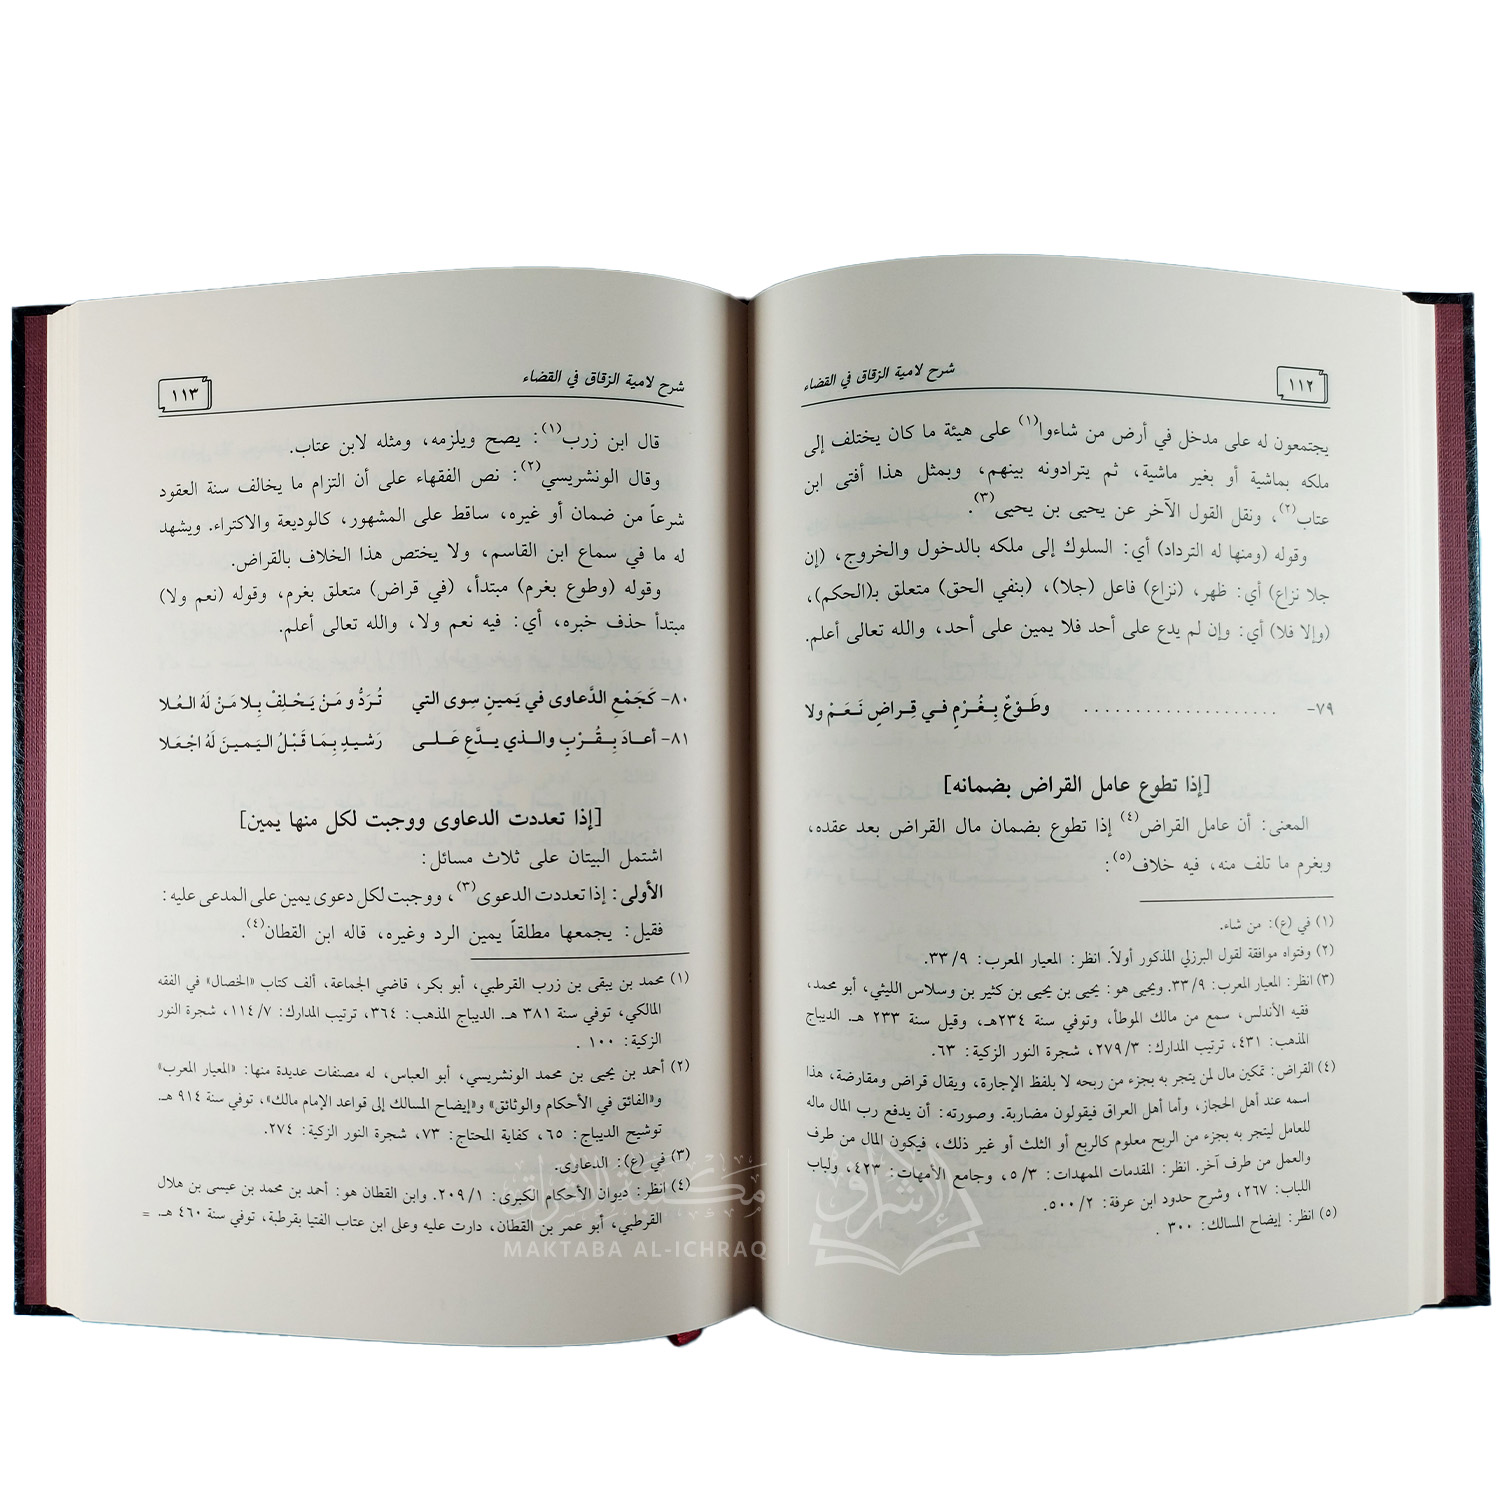 شرح لامية الزقاق في القضاء
١١٢
يجتمعون له على مدخل في أرض من شاءوا(١) على هيئة ما كان يختلف إلى
ملكه بماشية أو بغير ماشية، ثم يترادونه بينهم، وبمثل هذا أفتى ابن
عتاب(٢)، ونقل القول الآخر عن يحيى بن يحيى(٣).
وقوله (ومنها له الترداد) أي: السلوك إلى ملكه بالدخول والخروج، (إن
جلا نزاع) أي: ظهر، (نزاع) فاعل (جلا)، (بنفي الحق) متعلق بـ(الحكم)،
(وإلا فلا) أي: وإن لم يدع على أحد فلا يمين على أحد، والله تعالى أعلم.
٧٩- .................... وطَوْعٌ بِغُرْمٍ في قِراضٍ نَعَمْ ولا
[إذا تطوع عامل القراض بضمانه]
المعنى: أن عامل القراض(٤) إذا تطوع بضمان مال القراض بعد عقده،
وبغرم ما تلف منه، فيه خلاف(٥):
(١) في (ع): من شاء.
(٢) وفتواه موافقة لقول البرزلي المذكور أولاً. انظر: المعيار المعرب: ٣٣/٩.
(٣) انظر: المعيار المعرب: ٣٣/٩. ويحيى هو: يحيى بن يحيى بن كثير بن وسلاس الليثي، أبو محمد،
فقيه الأندلس، سمع من مالك الموطأ، وتوفي سنة ٢٣٤هـ، وقيل سنة ٢٣٣ هـ. الديباج
المذهب: ٤٣١، ترتيب المدارك: ٢٧٩/٣، شجرة النور الزكية: ٦٣.
(٤) القراض: تمكين مال لمن يتجر به بجزء من ربحه لا بلفظ الإجارة، ويقال قراض ومقارضة، هذا
اسمه عند أهل الحجاز، وأما أهل العراق فيقولون مضاربة. وصورته: أن يدفع رب المال ماله
للعامل ليتجر به بجزء من الربح معلوم كالربع أو الثلث أو غير ذلك، فيكون المال من طرف
والعمل من طرف آخر. انظر: المقدمات الممهدات: ٥/٣، وجامع الأمهات: ٤٢٣، ولباب
اللباب: ٢٦٧، وشرح حدود ابن عرفة: ٥٠٠/٢.
(٥) انظر: إيضاح المسالك: ٣٠٠ .
شرح لامية الزقاق في القضاء
١١٣
قال ابن زرب(١): يصح ويلزمه، ومثله لابن عتاب.
وقال الونشريسي(٢): نص الفقهاء على أن التزام ما يخالف سنة العقود
شرعاً من ضمان أو غيره، ساقط على المشهور، كالوديعة والاكتراء. ويشهد
له ما في سماع ابن القاسم، ولا يختص هذا الخلاف بالقراض.
وقوله (وطوع بغرم) مبتدأ، (في قراض) متعلق بغرم، وقوله (نعم ولا)
مبتدأ حذف خبره، أي: فيه نعم ولا، والله تعالى أعلم.
٨٠- كَجَمْعِ الدَّعاوى في يَمينٍ سِوى التي تُرَدُّ ومَنْ يَحْلِفْ بِلا مَنْ لَهُ العُلا
٨١- أعادَ بِقُرْبٍ والذي يدَّعِ عَلى رَشيدٍ بِمَا قَبْلُ اليَمينَ لَهُ اجْعَلا
[إذا تعددت الدعاوى ووجبت لكل منها يمين]
اشتمل البيتان على ثلاث مسائل:
الأولى: إذا تعددت الدعوى(٣)، ووجبت لكل دعوى يمين على المدعى عليه:
فقيل: يجمعها مطلقاً يمين الرد وغيره، قاله ابن القطان(٤).
(١) محمد بن يبقى بن زرب القرطبي، أبو بكر، قاضي الجماعة، ألف كتاب «الخصال» في الفقه
المالكي، توفي سنة ٣٨١ هـ. الديباج المذهب: ٣٦٤، ترتيب المدارك: ١١٤/٧، شجرة النور
الزكية: ١٠٠ .
(٢) أحمد بن يحيى بن محمد الونشريسي، أبو العباس، له مصنفات عديدة منها: «المعيار المعرب»
و«الفائق في الأحكام والوثائق» و«إيضاح المسالك إلى قواعد الإمام مالك»، توفي سنة ٩١٤ هـ.
توشيح الديباج: ٦٥، كفاية المحتاج: ٧٣، شجرة النور الزكية: ٢٧٤.
(٣) في (ع): الدعاوى.
(٤) انظر: ديوان الأحكام الكبرى: ٢٠٩/١. وابن القطان هو: أحمد بن محمد بن عيسى بن هلال
القرطبي، أبو عمر بن القطان، دارت عليه وعلى ابن عتاب الفتيا بقرطبة، توفي سنة ٤٦٠ هـ. =
مكتبة الإشراق
MAKTABA AL-ICHRAQ
الإشراق